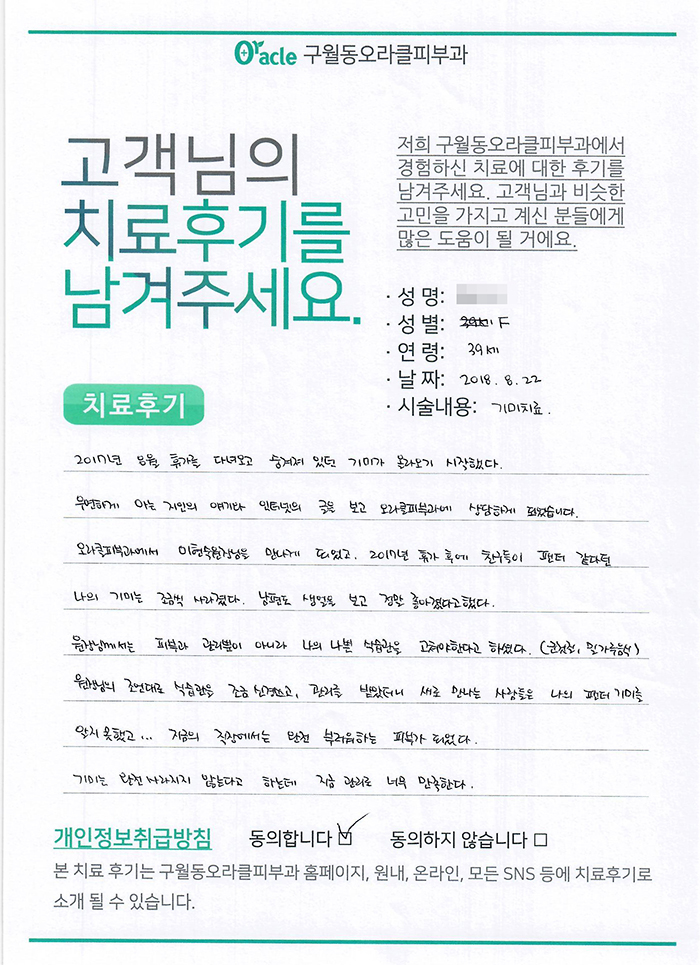 Oracle 구월동오라클피부과
고객님의
치료후기를
남겨주세요.
저희 구월동오라클피부과에서
경험하신 치료에 대한 후기를
남겨주세요. 고객님과 비슷한
고민을 가지고 계신 분들에게
많은 도움이 될 거에요.
· 성 명:
· 성 별: 39세 F
· 연 령: 39세
· 날 짜: 2018. 8. 22
· 시술내용: 기미치료.
치료후기
2017년 8월 휴가를 다녀오고 숨겨져 있던 기미가 올라오기 시작했다.
우연하게 아는 지인의 얘기와 인터넷의 글을 보고 오라클피부과에 상담하게 되었습니다.
오라클피부과에서 이현숙원장님을 만나게 되었고. 2017년 휴가 후에 친구들이 팬더 같다던
나의 기미는 조금씩 사라졌다. 남편도 생얼을 보고 정말 좋아졌다고했다.
원장님께서는 피부과 관리뿐이 아니라 나의 나쁜 식습관을 고쳐야한다고 하셨다. (군것질, 밀가루음식)
원장님의 조언대로 식습관을 조금 신경쓰고, 관리를 받았더니 새로 만나는 사람들은 나의 팬더 기미를
알지 못했고... 지금의 직장에서는 완전 부러워하는 피부가 되었다.
기미는 완전 사라지지 않는다고 하는데 지금 관리로 너무 만족한다.
개인정보취급방침 동의합니다 동의하지 않습니다
본 치료 후기는 구월동오라클피부과 홈페이지, 원내, 온라인, 모든 SNS 등에 치료후기로
소개 될 수 있습니다.